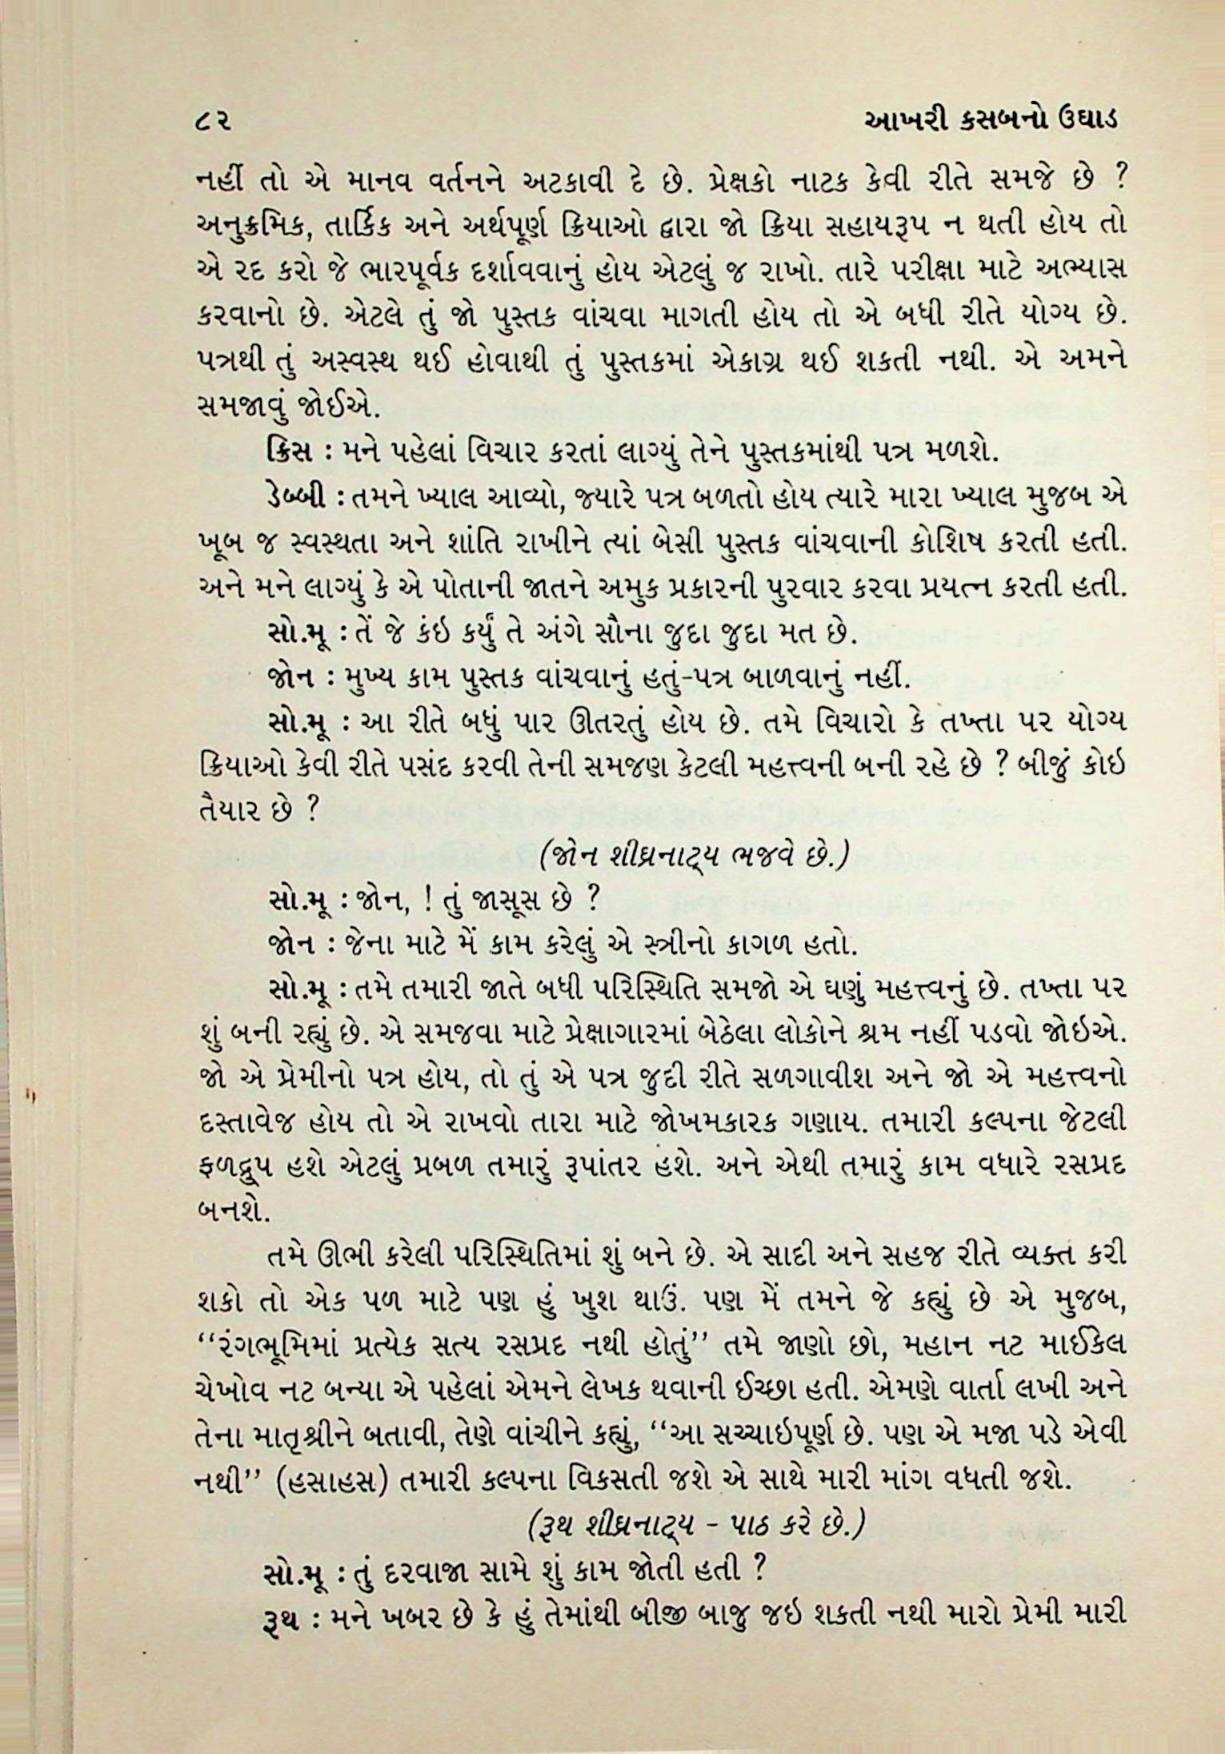 ૮૨ આખરી કસબનો ઉઘાડ
નહીં તો એ માનવ વર્તનને અટકાવી દે છે. પ્રેક્ષકો નાટક કેવી રીતે સમજે છે ?
અનુક્રમિક, તાર્કિક અને અર્થપૂર્ણ ક્રિયાઓ દ્વારા જો ક્રિયા સહાયરૂપ ન થતી હોય તો
એ રદ કરો જે ભારપૂર્વક દર્શાવવાનું હોય એટલું જ રાખો. તારે પરીક્ષા માટે અભ્યાસ
કરવાનો છે. એટલે તું જો પુસ્તક વાંચવા માગતી હોય તો એ બધી રીતે યોગ્ય છે.
પત્રથી તું અસ્વસ્થ થઈ હોવાથી તું પુસ્તકમાં એકાગ્ર થઈ શકતી નથી. એ અમને
સમજાવું જોઈએ.
ક્રિસ : મને પહેલાં વિચાર કરતાં લાગ્યું તેને પુસ્તકમાંથી પત્ર મળશે.
ડેબ્બી : તમને ખ્યાલ આવ્યો, જ્યારે પત્ર બળતો હોય ત્યારે મારા ખ્યાલ મુજબ એ
ખૂબ જ સ્વસ્થતા અને શાંતિ રાખીને ત્યાં બેસી પુસ્તક વાંચવાની કોશિષ કરતી હતી.
અને મને લાગ્યું કે એ પોતાની જાતને અમુક પ્રકારની પુરવાર કરવા પ્રયત્ન કરતી હતી.
સો.મૂ : તેં જે કંઇ કર્યું તે અંગે સૌના જુદા જુદા મત છે.
જોન : મુખ્ય કામ પુસ્તક વાંચવાનું હતું-પત્ર બાળવાનું નહીં.
સો.મૂ : આ રીતે બધું પાર ઊતરતું હોય છે. તમે વિચારો કે તખ્તા પર યોગ્ય
ક્રિયાઓ કેવી રીતે પસંદ કરવી તેની સમજણ કેટલી મહત્ત્વની બની રહે છે ? બીજું કોઇ
તૈયાર છે ?
(જોન શીઘ્રનાટ્ય ભજવે છે.)
સો.મૂ : જોન, ! તું જાસૂસ છે ?
જોન : જેના માટે મેં કામ કરેલું એ સ્ત્રીનો કાગળ હતો.
સો.મૂ : તમે તમારી જાતે બધી પરિસ્થિતિ સમજો એ ઘણું મહત્ત્વનું છે. તખ્તા પર
શું બની રહ્યું છે. એ સમજવા માટે પ્રેક્ષાગારમાં બેઠેલા લોકોને શ્રમ નહીં પડવો જોઇએ.
જો એ પ્રેમીનો પત્ર હોય, તો તું એ પત્ર જુદી રીતે સળગાવીશ અને જો એ મહત્ત્વનો
દસ્તાવેજ હોય તો એ રાખવો તારા માટે જોખમકારક ગણાય. તમારી કલ્પના જેટલી
ફળદ્રુપ હશે એટલું પ્રબળ તમારું રૂપાંતર હશે. અને એથી તમારું કામ વધારે રસપ્રદ
બનશે.
તમે ઊભી કરેલી પરિસ્થિતિમાં શું બને છે. એ સાદી અને સહજ રીતે વ્યક્ત કરી
શકો તો એક પળ માટે પણ હું ખુશ થાઉં. પણ મેં તમને જે કહ્યું છે એ મુજબ,
‘‘રંગભૂમિમાં પ્રત્યેક સત્ય રસપ્રદ નથી હોતું’’ તમે જાણો છો, મહાન નટ માઈકેલ
ચેખોવ નટ બન્યા એ પહેલાં એમને લેખક થવાની ઈચ્છા હતી. એમણે વાર્તા લખી અને
તેના માતૃશ્રીને બતાવી, તેણે વાંચીને કહ્યું, ‘‘આ સચ્ચાઇપૂર્ણ છે. પણ એ મજા પડે એવી
નથી’’ (હસાહસ) તમારી કલ્પના વિકસતી જશે એ સાથે મારી માંગ વધતી જશે.
(રૂથ શીઘ્રનાટ્ય - પાઠ કરે છે.)
સો.મૂ : તું દરવાજા સામે શું કામ જોતી હતી ?
રૂથ : મને ખબર છે કે હું તેમાંથી બીજી બાજુ જઇ શકતી નથી મારો પ્રેમી મારી